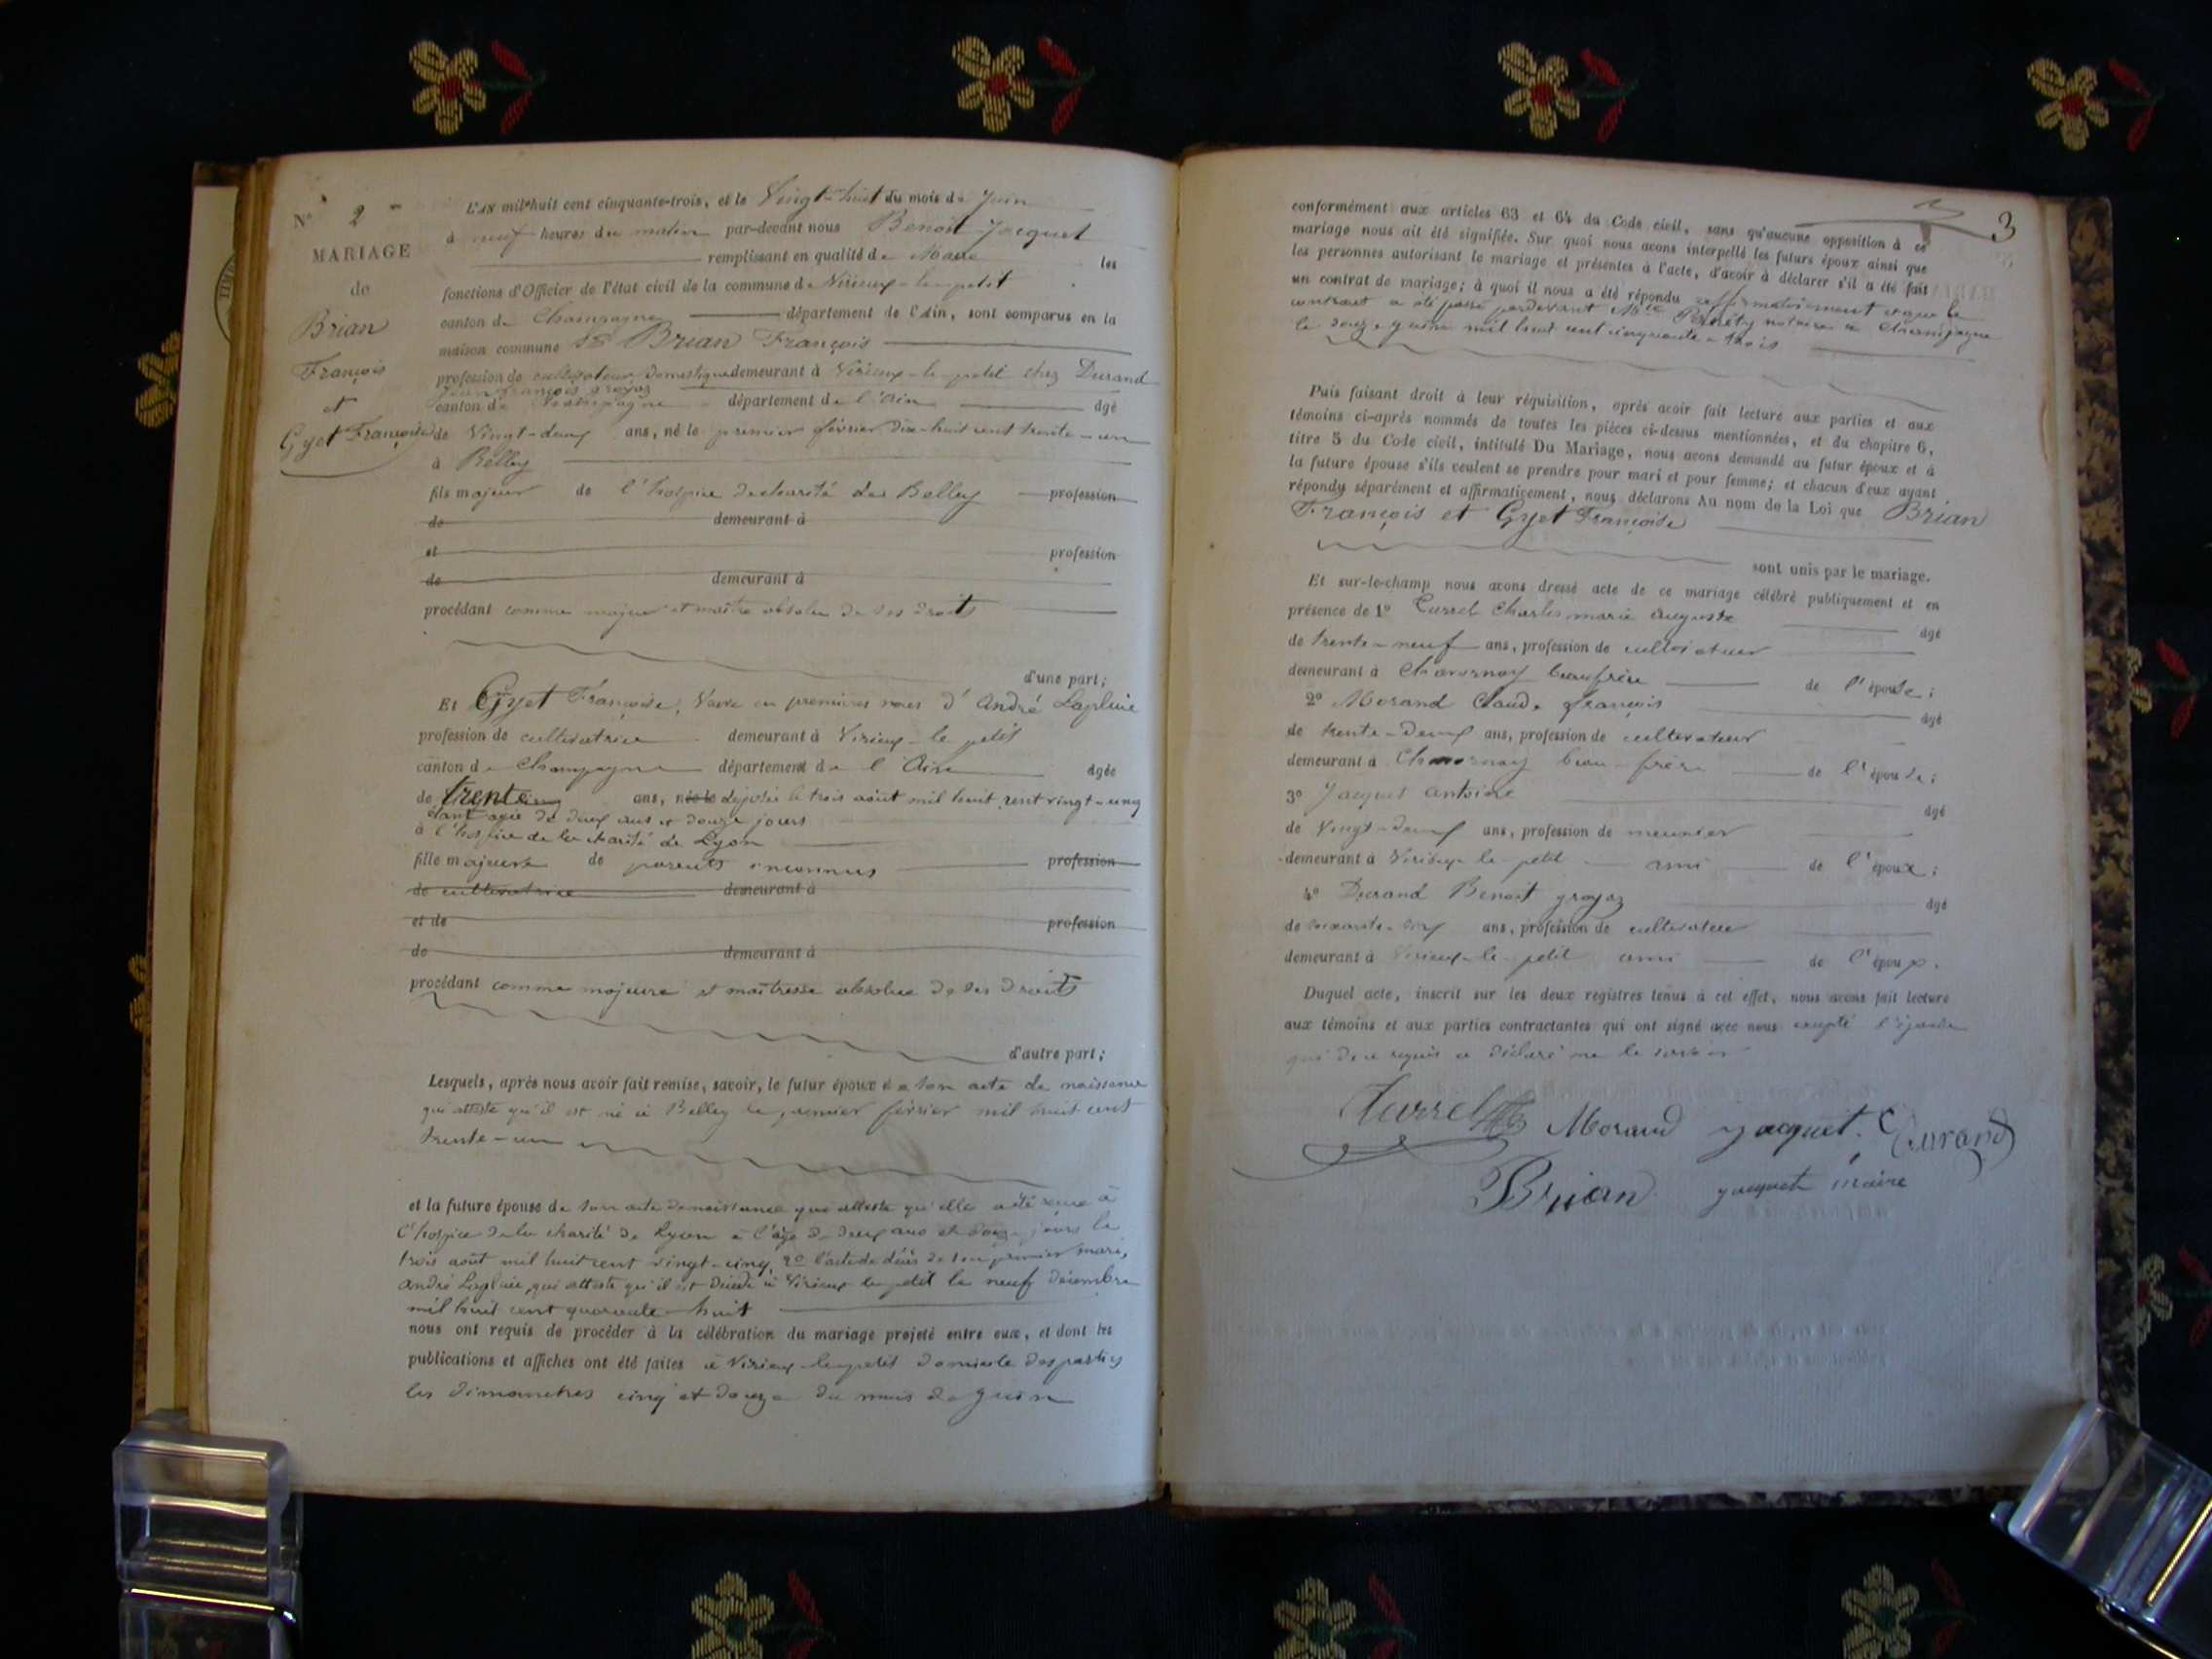 N° 2
MARIAGE
de
Brian
François
et
Gyet Françoise
L'AN mil huit cent cinquante-trois, et le Vingt-huit du mois de Juin
à neuf heures du matin par-devant nous Benoit Jacquet
remplissant en qualité de Maire les
fonctions d'Officier de l'état civil de la commune de Virieux-le-petit
canton de Champagne département de l'Ain, sont comparus en la
maison commune Brian François
profession de cultivateur domestique demeurant à Virieux-le-petit chez Durand
Jean François groyoz
canton de Champagne département de l'Ain âgé
de Vingt-deux ans, né le premier février dix-huit cent trente-un
à Belley
fils majeur de l'hospice de charité de Belley profession
de demeurant à
et profession
de demeurant à
procédant comme majeur et maître absolu de ses droits
d'une part;
Et Gyet Françoise, Veuve en premières noces d'André Lapluie
profession de cultivatrice demeurant à Virieux-le-petit
canton de Champagne département de l'Ain âgée
de trente ans, née le déposée le trois août mil huit cent vingt-cinq
étant agée de deux ans et douze jours
à l'hospice de la charité de Lyon
fille majeure de parents inconnus profession
de cultivatrice demeurant à
et de profession
de demeurant à
procédant comme majeure et maîtresse absolue de ses droits
d'autre part;
Lesquels, après nous avoir fait remise, savoir, le futur époux de son acte de naissance
qui atteste qu'il est né à Belley le premier février mil huit cent
trente-un
et la future épouse de son acte de naissance qui atteste qu'elle a été reçue à
l'hospice de la charité de Lyon à l'âge de deux ans et douze jours le
trois août mil huit cent vingt-cinq, 2° l'acte de décès de son premier mari,
André Lapluie, qui atteste qu'il est décédé à Virieux le petit le neuf décembre
mil huit cent quarante-huit
nous ont requis de procéder à la célébration du mariage projeté entre eux, et dont les
publications et affiches ont été faites à Virieux-le-petit domicile des parties
les dimanches cinq et douze du mois de Juin
3
conformément aux articles 63 et 64 du Code civil, sans qu'aucune opposition à ce
mariage nous ait été signifiée. Sur quoi nous avons interpellé les futurs époux ainsi que
les personnes autorisant le mariage et présentes à l'acte, d'avoir à déclarer s'il a été fait
un contrat de mariage; à quoi il nous a été répondu affirmativement et que le
contract a été passé pardevant Mtre notaire à Champagne
le douze juin mil huit cent cinquante-trois
Puis faisant droit à leur réquisition, après avoir fait lecture aux parties et aux
témoins ci-après nommés de toutes les pièces ci-dessus mentionnées, et du chapitre 6,
titre 5 du Code civil, intitulé Du Mariage, nous avons demandé au futur époux et à
la future épouse s'ils veulent se prendre pour mari et pour femme; et chacun d'eux ayant
répondu séparément et affirmativement, nous déclarons Au nom de la Loi que Brian
François et Gyet Françoise
sont unis par le mariage.
Et sur-le-champ nous avons dressé acte de ce mariage célébré publiquement et en
présence de 1° Turrel Charles marie Auguste âgé
de trente-neuf ans, profession de cultivateur
demeurant à Chavornay beaufrère de l'épouse;
2° Morand Claude françois âgé
de trente-deux ans, profession de cultivateur
demeurant à Chavornay beau-frère de l'épouse;
3° Jacquet Antoine âgé
de Vingt-deux ans, profession de meunier
demeurant à Virieux-le-petit ami de l'époux;
4° Durand Benoit groyoz âgé
de soixante-cinq ans, profession de cultivateur
demeurant à Virieux-le-petit ami de l'époux.
Duquel acte, inscrit sur les deux registres tenus à cet effet, nous avons fait lecture
aux témoins et aux parties contractantes qui ont signé avec nous excepté l'épouse
qui de ce requis a déclaré ne le savoir
Turrel Morand Jacquet Durand
Brian Jacquet maire